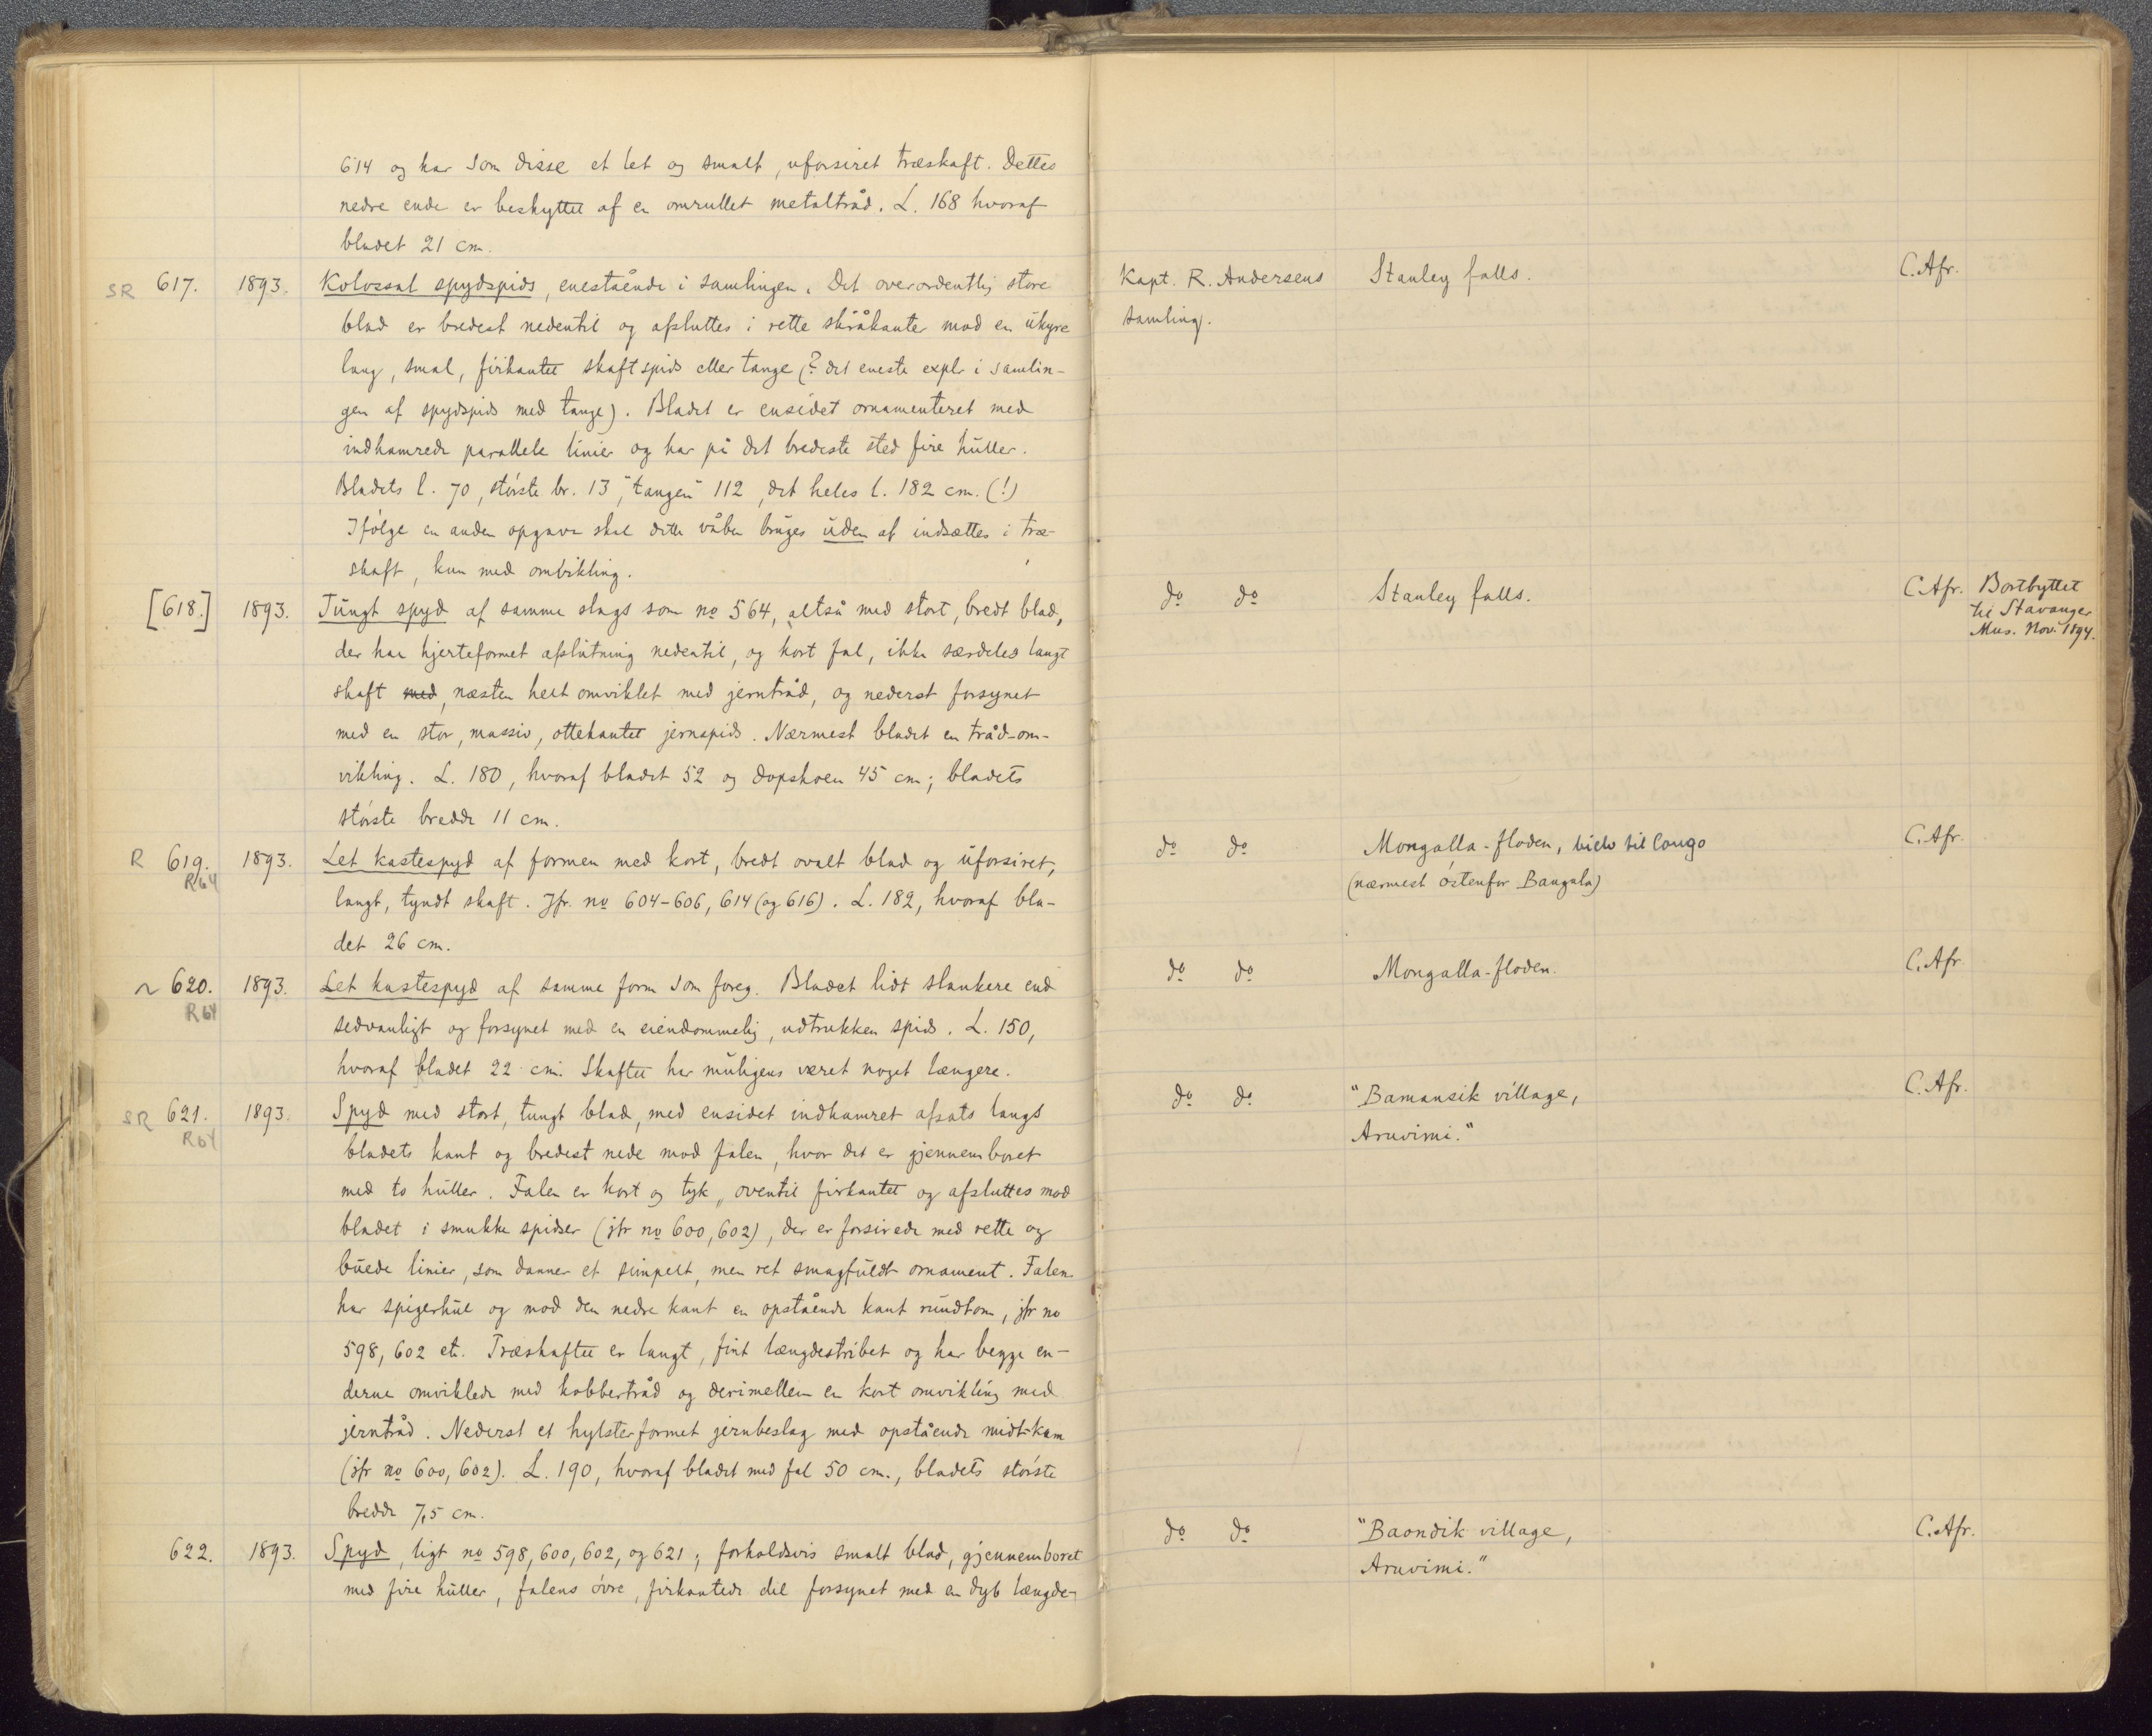 614 og har som disse et let og smalt, uforsiret træskaft. Dettes
nedre ende er beskyttet af en omrullet metaltråd. L. 168 hvoraf
bladet 21 cm.
SR 617. 1893. Kolossal spydspids, enestående i samlingen. Det overordentlig store Kapt. R. Andersens Stanley falls. C. Afr.
blad er bredest nedentil og afsluttes i rette skråkanter mod en uhyre samling.
lang, smal, firkantet skaftspids eller tange (? det eneste explr i samlin-
gen af spydspids med tange). Bladet er ensidet ornamenteret med
indhamrede parallele linier og har på det bredeste sted fire huller.
Bladets l. 70, störste br. 13, "tangen" 112, det heles l. 182 cm. (!)
Ifölge en anden opgave skal dette våben bruges uden at indsættes i træ-
skaft, kun med omvikling.
[618.] 1893. Tungt spyd af samme slags som no 564, altså med stort, bredt blad, do do Stanley falls. C. Afr. Bortbyttet
til Stavanger
Mus. Nov. 1894.
der har hjerteformet afslutning nedentil, og kort fal, ikke særdeles langt
skaft med, næsten helt omviklet med jerntråd, og nederst forsynet
med en stor, massiv, ottekantet jernspids. Nærmest bladet en tråd-om-
vikling. L. 180, hvoraf bladet 52 og dopskoen 45 cm; bladets
störste bredde 11 cm.
R 619. 1893. Let kastespyd af formen med kort, bredt ovalt blad og uforsiret, do do Mongalla-floden, bielv til Congo C. Afr.
R64 langt, tyndt skaft. Jfr. no 604-606, 614 (og 616). L. 182, hvoraf bla- (nærmest östenfor Bangala)
det 26 cm.
~ 620. 1893. Let kastespyd af samme form som foreg. Bladet lidt slankere end do do Mongalla-floden. C. Afr.
R64 sedvanligt og forsynet med en eiendommelig, udtrukken spids. L. 150,
hvoraf bladet 22 cm. Skaftet har muligens været noget længere.
SR 621. 1893. Spyd med stort, tungt blad, med ensidet indhamret afsats langs do do "Bamansik village, C. Afr.
R64 bladets kant og bredest nede mod falen, hvor det er gjennemboret Aruvimi."
med to huller. Falen er kort og tyk, oventil firkantet og afsluttes mod
bladet i smukke spidser (jfr no 600, 602), der er forsirede med rette og
buede linier, som danner et simpelt, men ret smagfuldt ornament. Falen
har spigerhul og mod den nedre kant en opstående kant rundtom, jfr no
598, 602 etc. Træskaftet er langt, fint længdestribet og har begge en-
derne omviklede med kobbertråd og derimellem en kort omvikling med
jerntråd. Nederst et hylsterformet jernbeslag med opstående midt-kam
(jfr no 600, 602). L. 190, hvoraf bladet med fal 50 cm., bladets störste
bredde 7,5 cm.
622. 1893. Spyd, ligt no 598, 600, 602, og 621; forholdsvis smalt blad, gjennemboret do do "Baondik village, C. Afr.
med fire huller, falens övre, firkantede del forsynet med en dyb længde- Aruvimi."